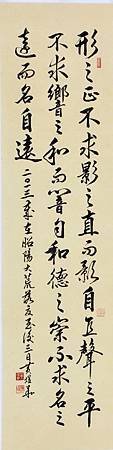 形之正不求影之直而影自直聲之平
不求響之和而響自和德之崇不求名之
遠而名自遠 二〇一三 在昭陽大荒落 三日